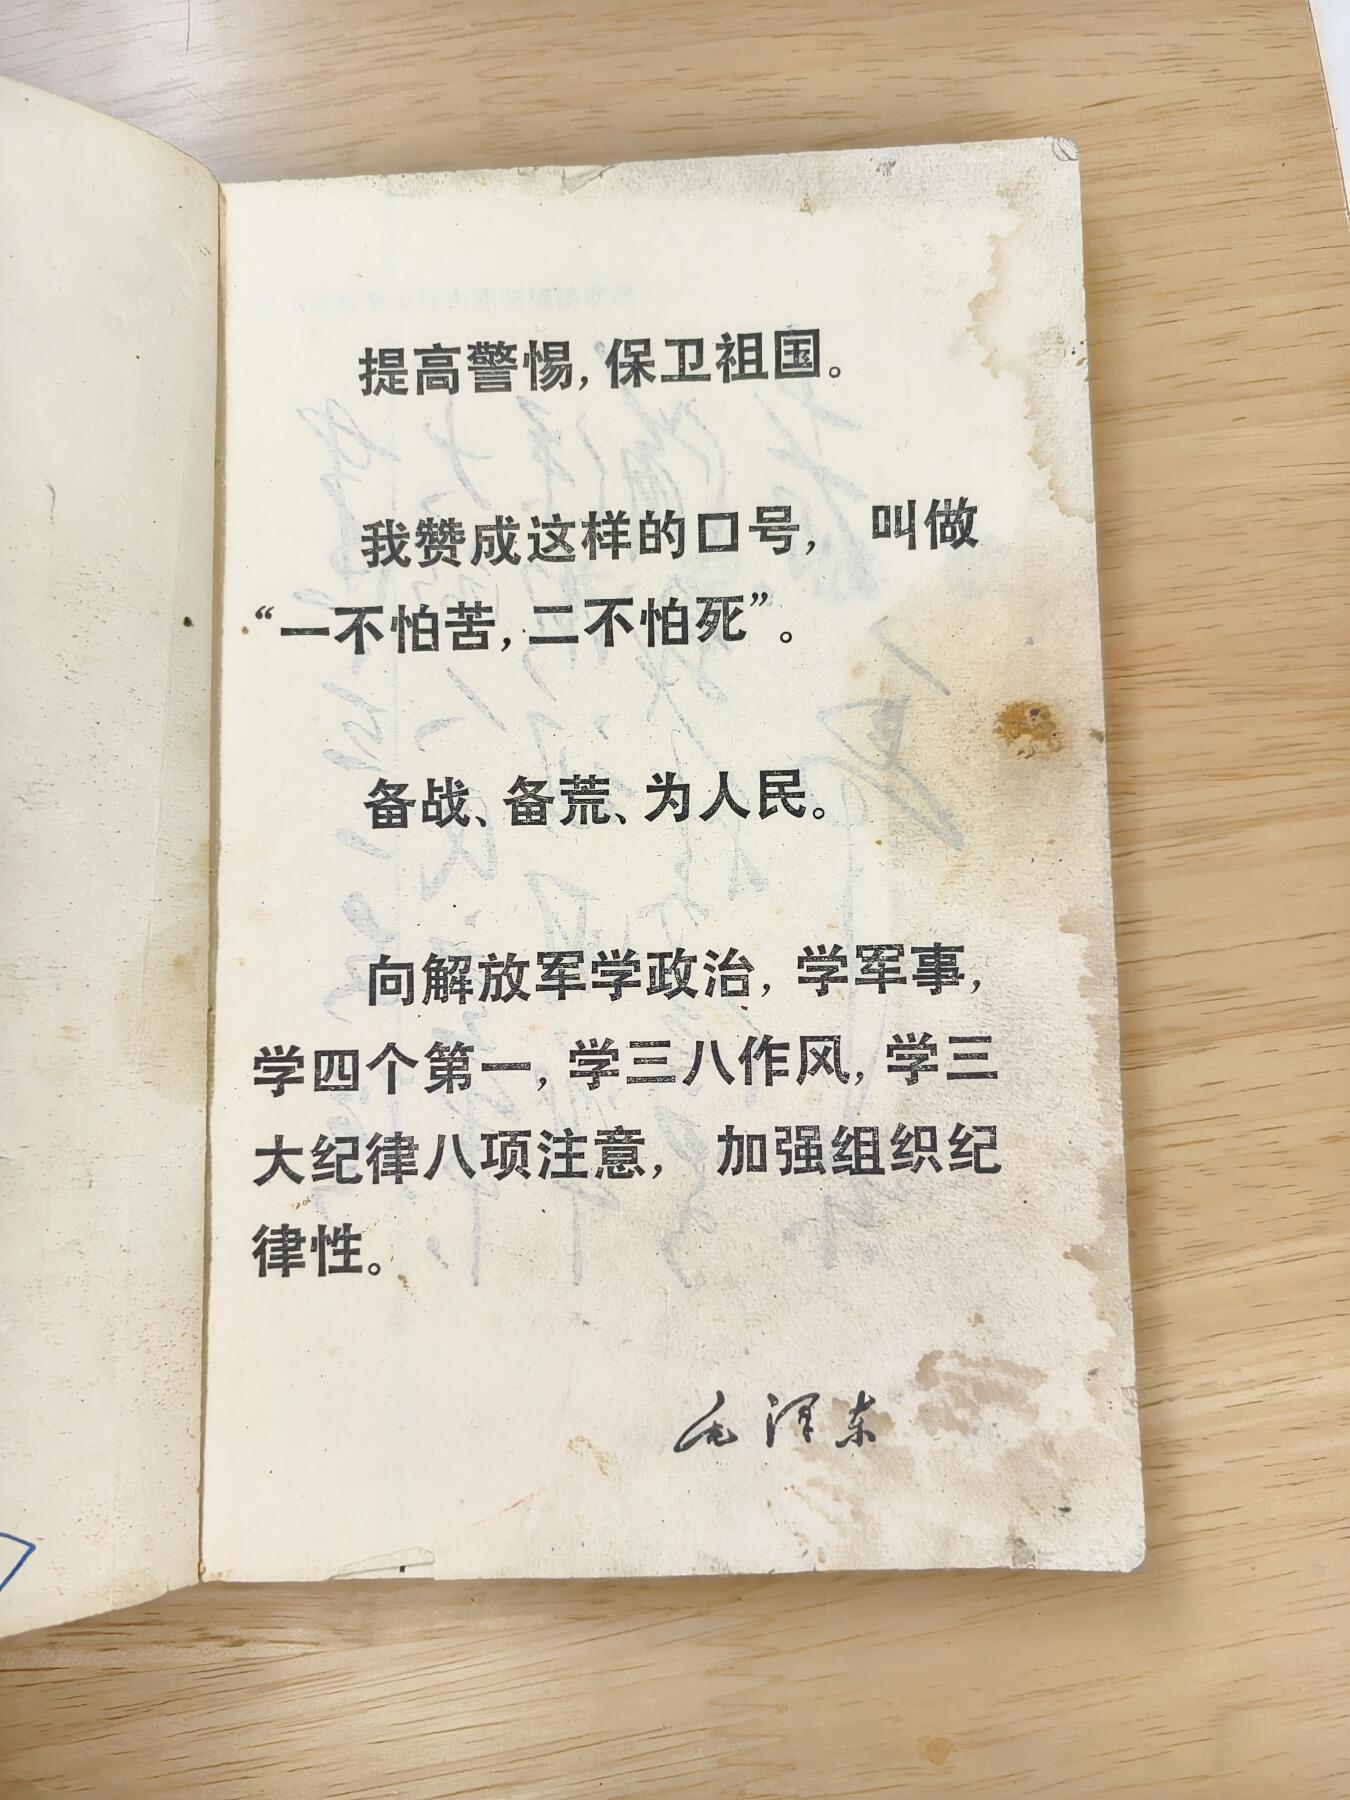 提高警惕，保卫祖国。
我赞成这样的口号，叫做
“一不怕苦，二不怕死”。
备战、备荒、为人民。
向解放军学政治，学军事，
学四个第一，学三八作风，学三
大纪律八项注意，加强组织纪
律性。
毛泽东